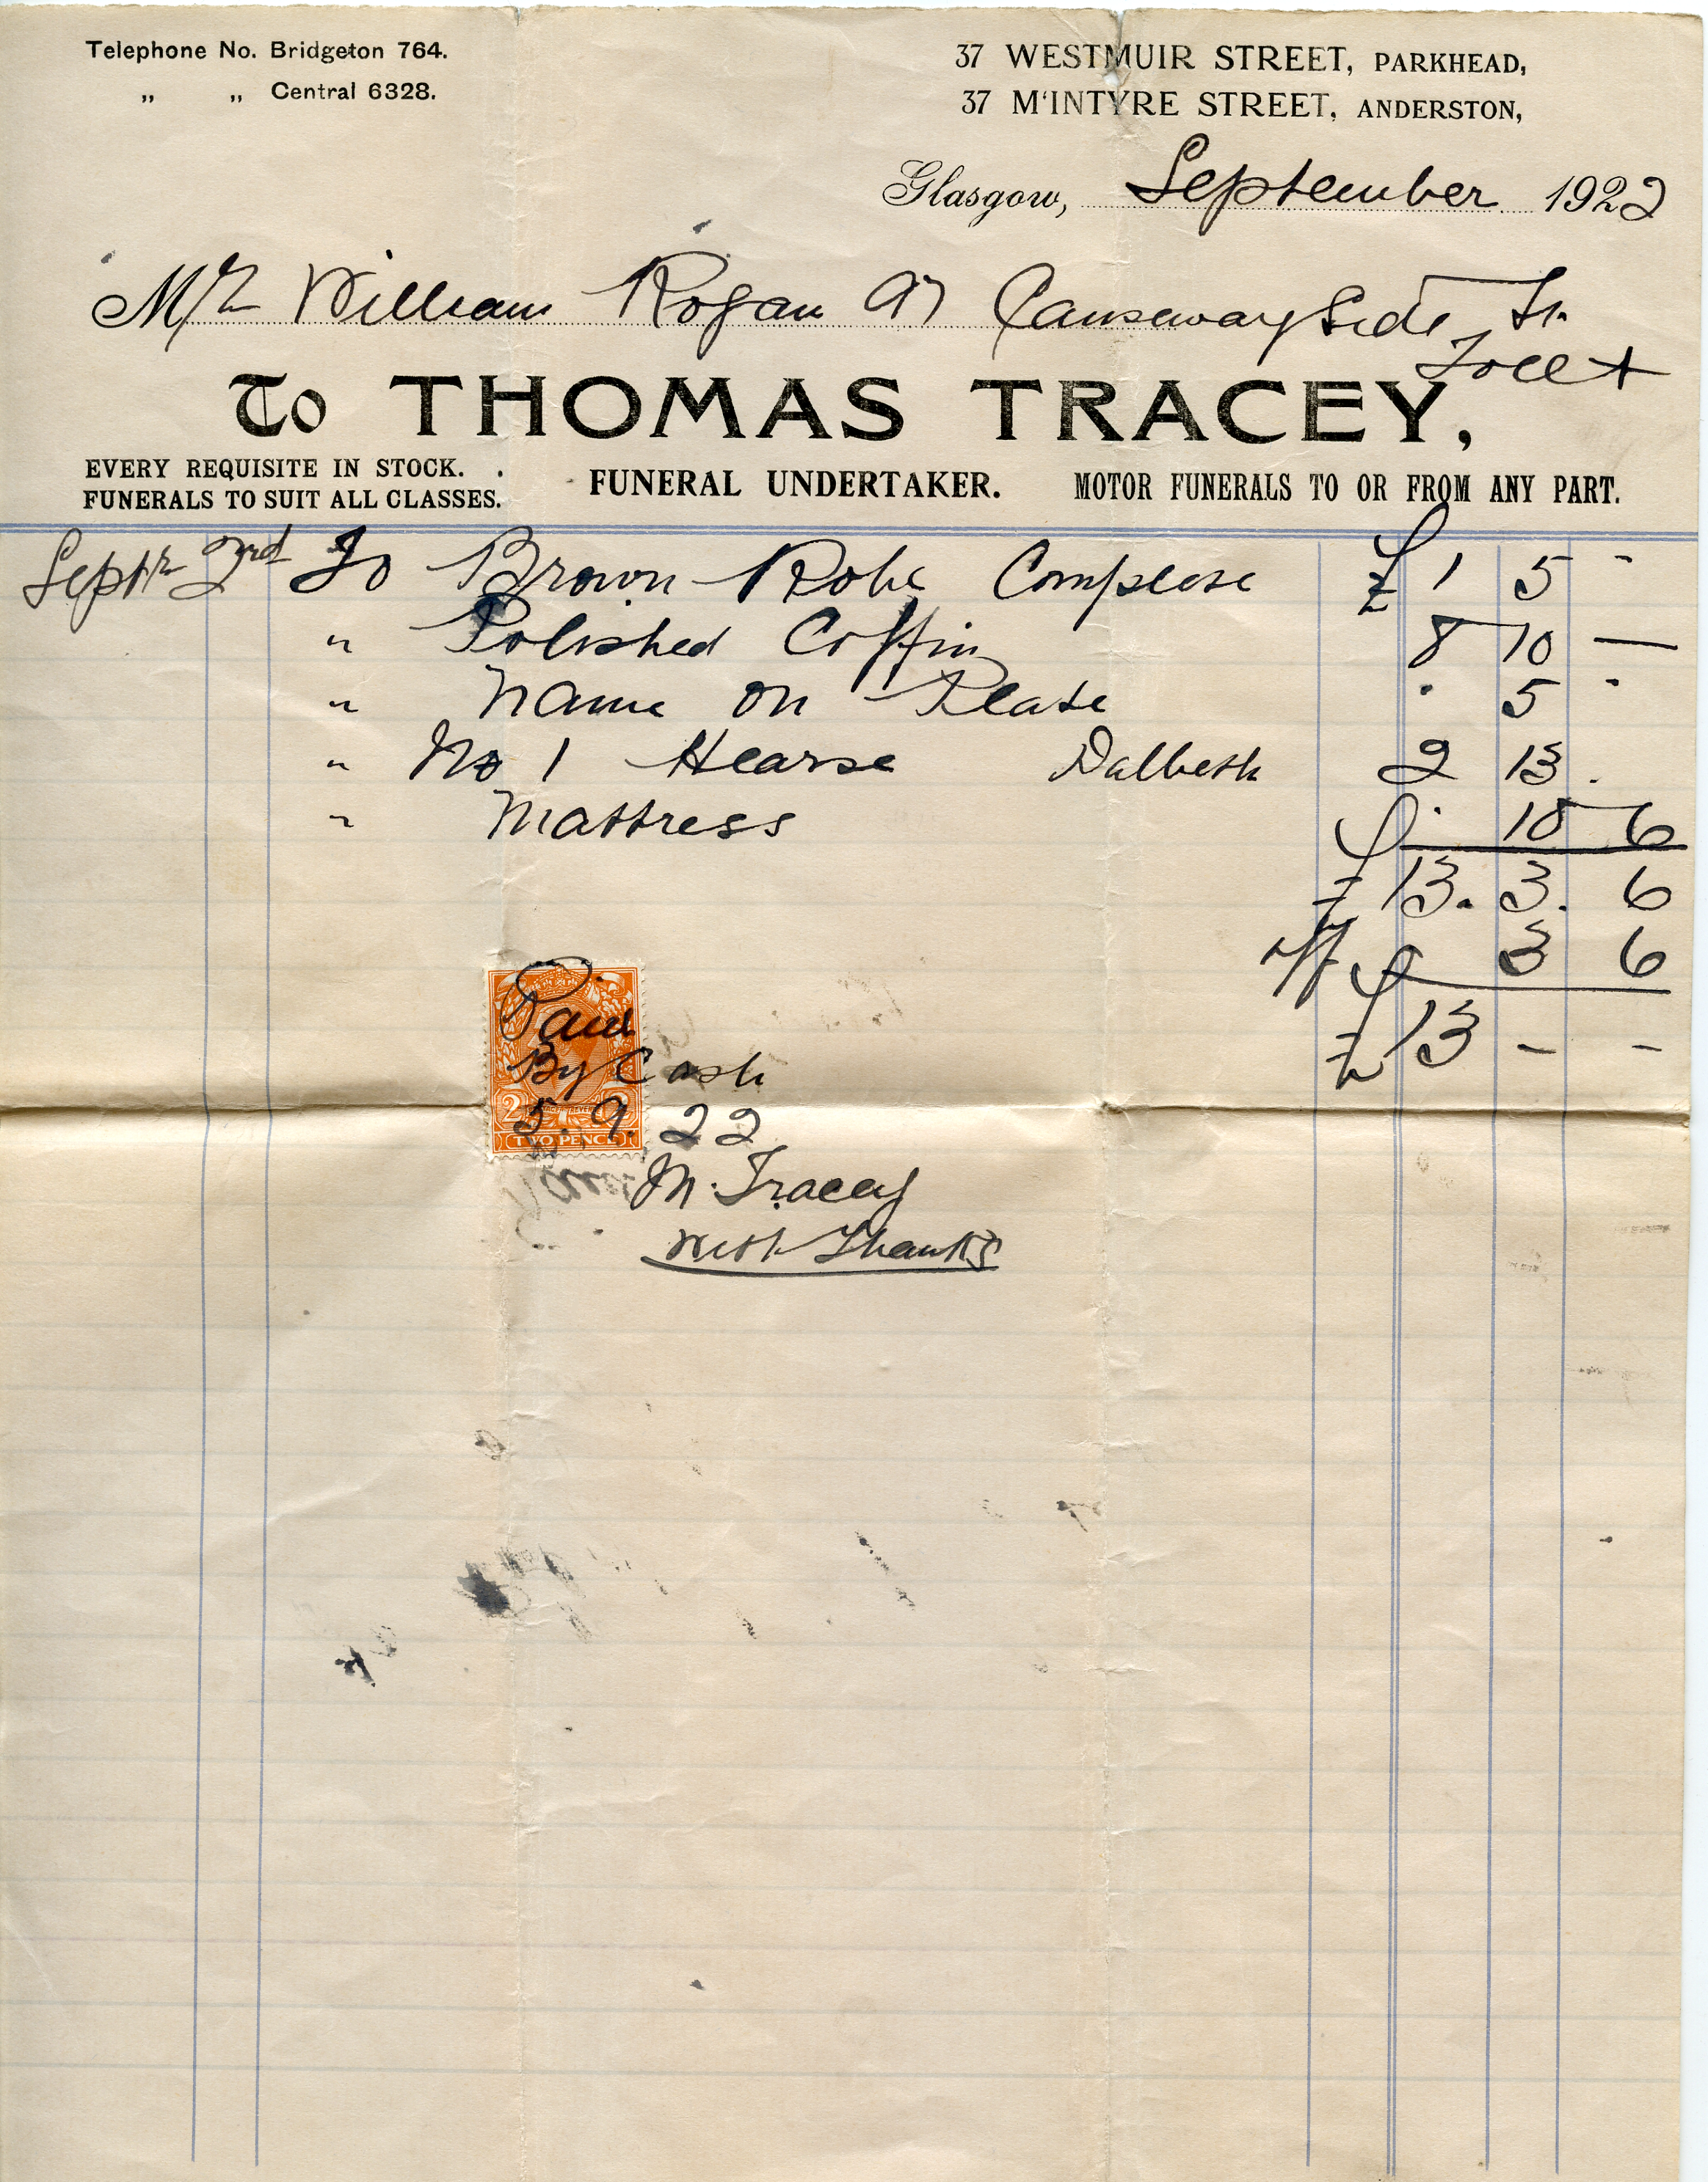 Telephone No. Bridgeton 764.
„ „ Central 6328.
37 WESTMUIR STREET, PARKHEAD,
37 M'INTYRE STREET, ANDERSTON,
Glasgow, September 1922
Mr William Rogan 97 Causewayside St.
Toll +
To THOMAS TRACEY,
EVERY REQUISITE IN STOCK.
FUNERALS TO SUIT ALL CLASSES.
FUNERAL UNDERTAKER.
MOTOR FUNERALS TO OR FROM ANY PART.
Septr 2nd To Brown Robe Complete £ 1 5 -
" Polished Coffin 8 10 —
" Name on Plate . 5 -
" No 1 Hearse Dalbeth 2 13 .
" Mattress . 10 6
£ 13. 3. 6
off 3 6
£ 13 - -
Paid
By Cash
5.9.22
TWO PENCE
M. Tracey
with Thanks